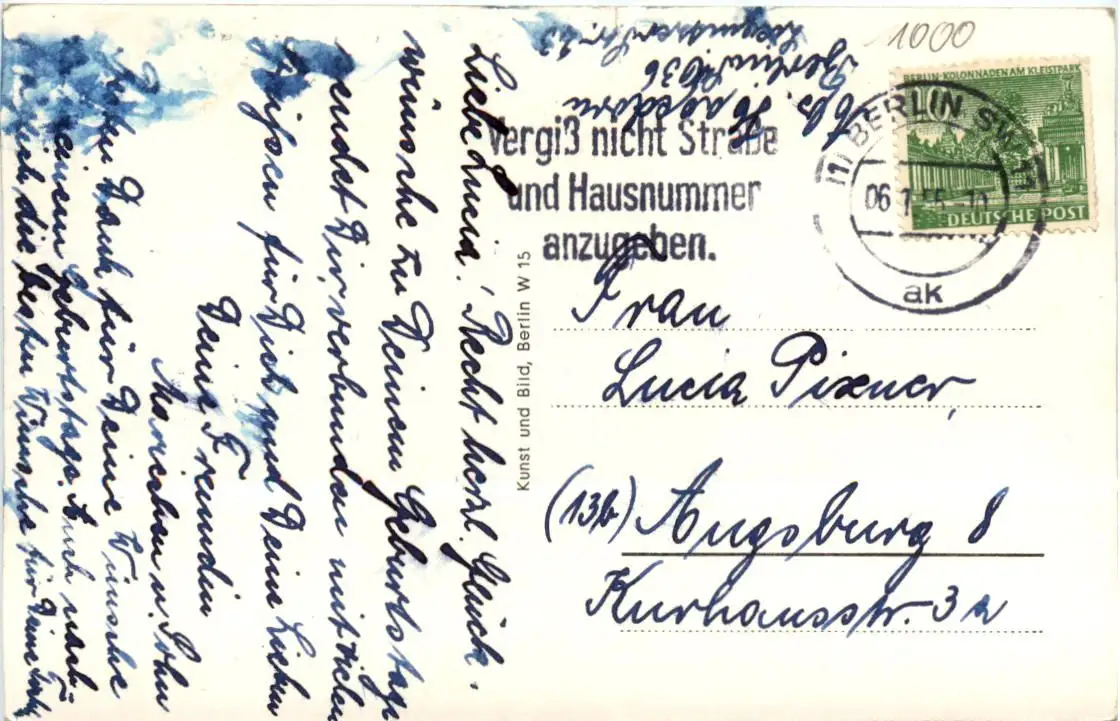 1000
Abs. Hagedorn
Berlin SO 36
BERLIN-KOLONNADEN AM KLEISTPARK
DEUTSCHE POST
(1) BERLIN SW 11
06.1.55
ak
Vergiß nicht Straße
und Hausnummer
anzugeben.
Frau
Lucia Pixner,
(13b) Augsburg 8
Kurhausstr. 3a
Kunst und Bild, Berlin W 15
Liebe Lucia! Recht herzl. Glück-
wünsche zu Deinem Geburtstage
sendet Dir verbunden mit vielen
Grüßen für Dich und Deine Lieben
Deine Freundin
Mariechen u. Sohn
Dank für Deine Wünsche
meinem Geburtstage. Auch nach-
die besten Wünsche für Deine